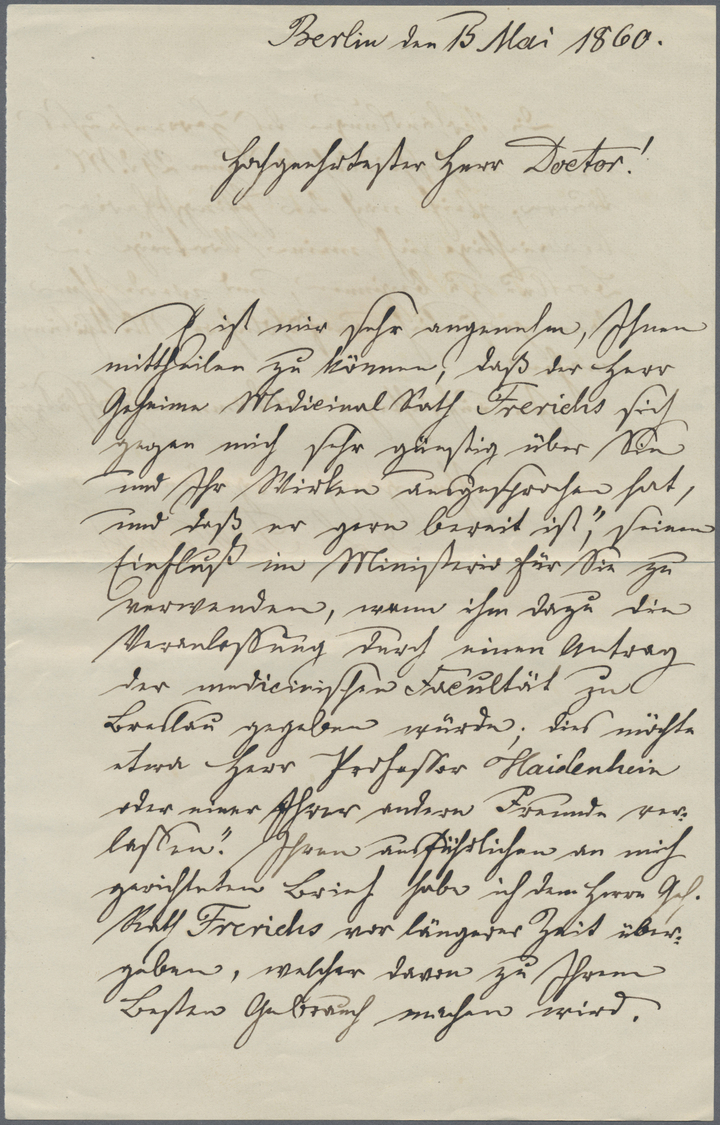 Berlin den 13 Mai 1860.
Hochgeehrtester Herr Doctor!
Es ist mir sehr angenehm, Ihnen
mittheilen zu können, daß der Herr
Geheime Medicinal Rath Frerichs sich
gegen mich sehr günstig über Sie
und Ihr Wirken ausgesprochen hat,
und daß er gern bereit ist", seinen
Einfluß im Ministerio für Sie zu
verwenden, wenn ihm dazu die
Veranlassung durch einen Antrag
der medicinischen Facultät zu
Breslau gegeben würde; dies möchte
etwa Herr Professor Haidenhein
oder einer Ihrer andern Freunde ver-
lassen". Ihren ausführlichen an mich
gerichteten Brief habe ich dem Herrn Geh.
Rath Frerichs vor längerer Zeit über-
geben, welcher davon zu Ihrem
Besten Gebrauch machen wird.